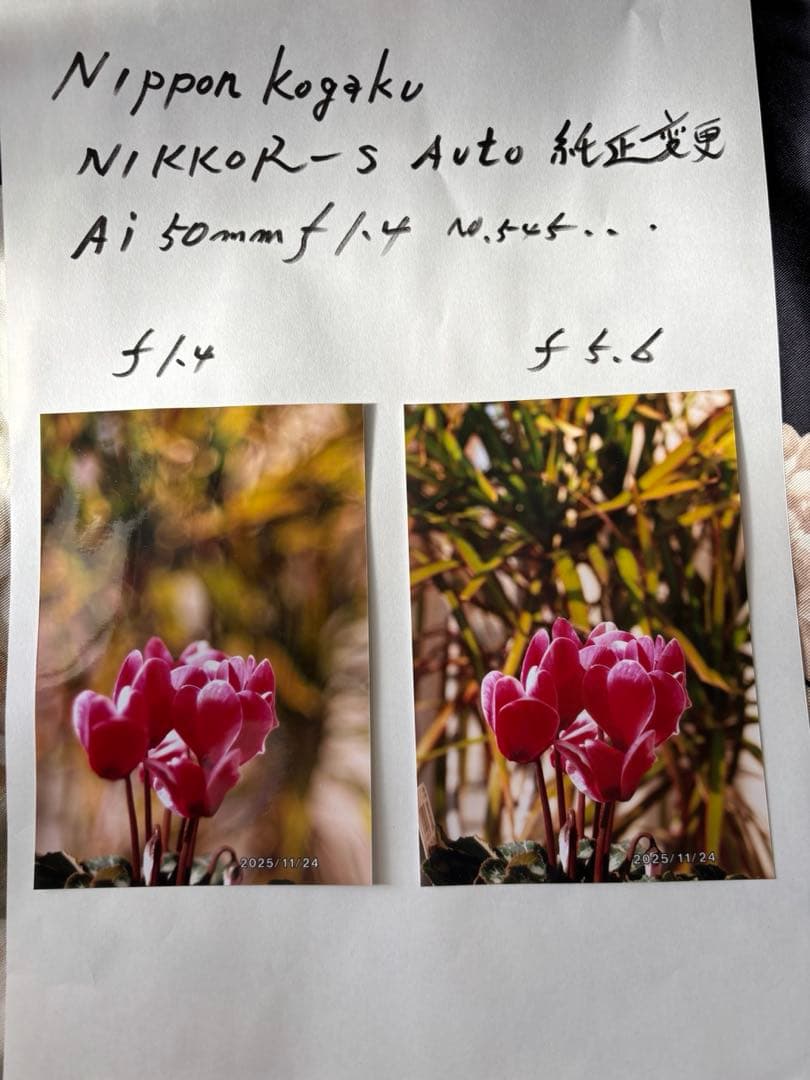 Nippon Kogaku
NIKKOR-S Auto 純正変更
Ai 50mm f1.4 No.545...
f1.4
f5.6
2025/11/24
2025/11/24